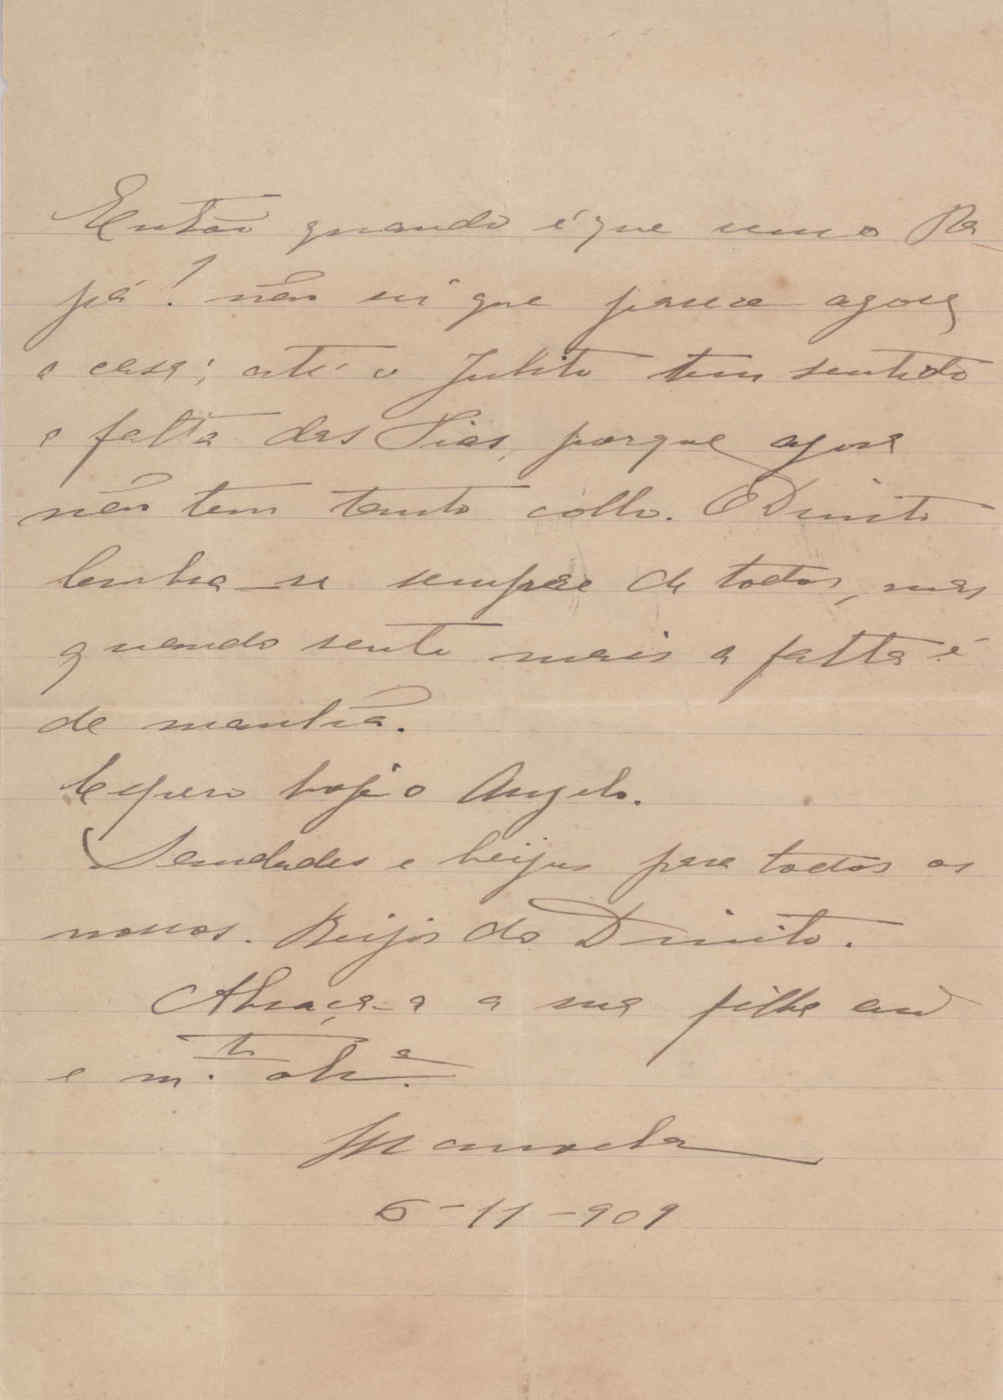 Então quando é que vem o Pa-
pá! não sei que parece agora
a casa; até o Julito tem sentido
a falta das Tias, porque agora
não tem tanto collo. O Dinito
lembra-se sempre de todos, mas
quando sente mais a falta é
de manhã.
Espero hoje o Angelo.
Saudades e beijos para todos os
nossos. Beijos do Dinito.
Abraça-a a sua filha am.
e m.to obr.a
Manoela
6-11-909